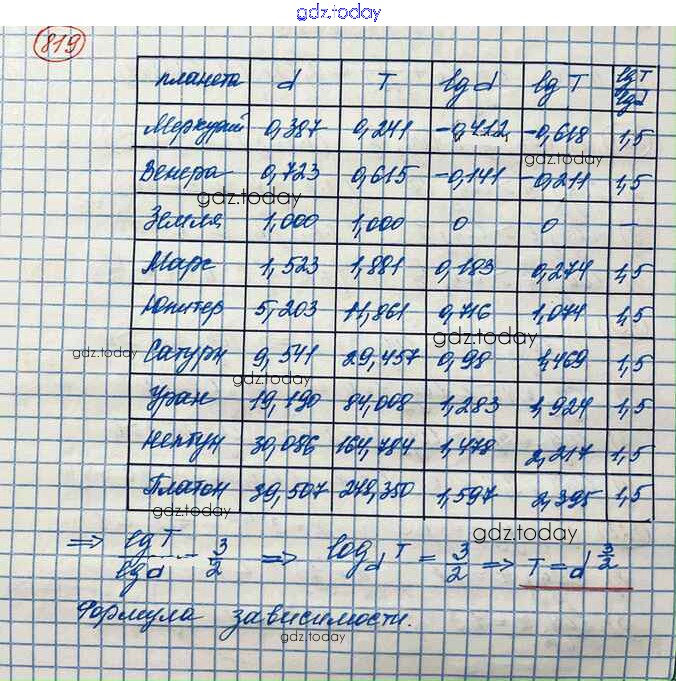 gdz.today
819
планета d T lg d lg T lg T / lg d
Меркурий 0,387 0,241 -0,412 -0,618 1,5
gdz.today
Венера 0,723 0,615 -0,141 -0,211 1,5
gdz.today
Земля 1,000 1,000 0 0 —
Марс 1,523 1,881 0,183 0,274 1,5
Юпитер 5,203 11,861 0,716 1,074 1,5
gdz.today
Сатурн 9,541 29,457 0,98 1,469 1,5
gdz.today
gdz.today
Уран 19,190 84,008 1,283 1,924 1,5
Нептун 30,086 164,784 1,478 2,217 1,5
Платон 39,507 248,350 1,597 2,395 1,5
gdz.today
gdz.today
⇒ lg T / lg d = 3/2 ⇒ log_d T = 3/2 ⇒ T = d^3/2
Формула зависимости.
gdz.today